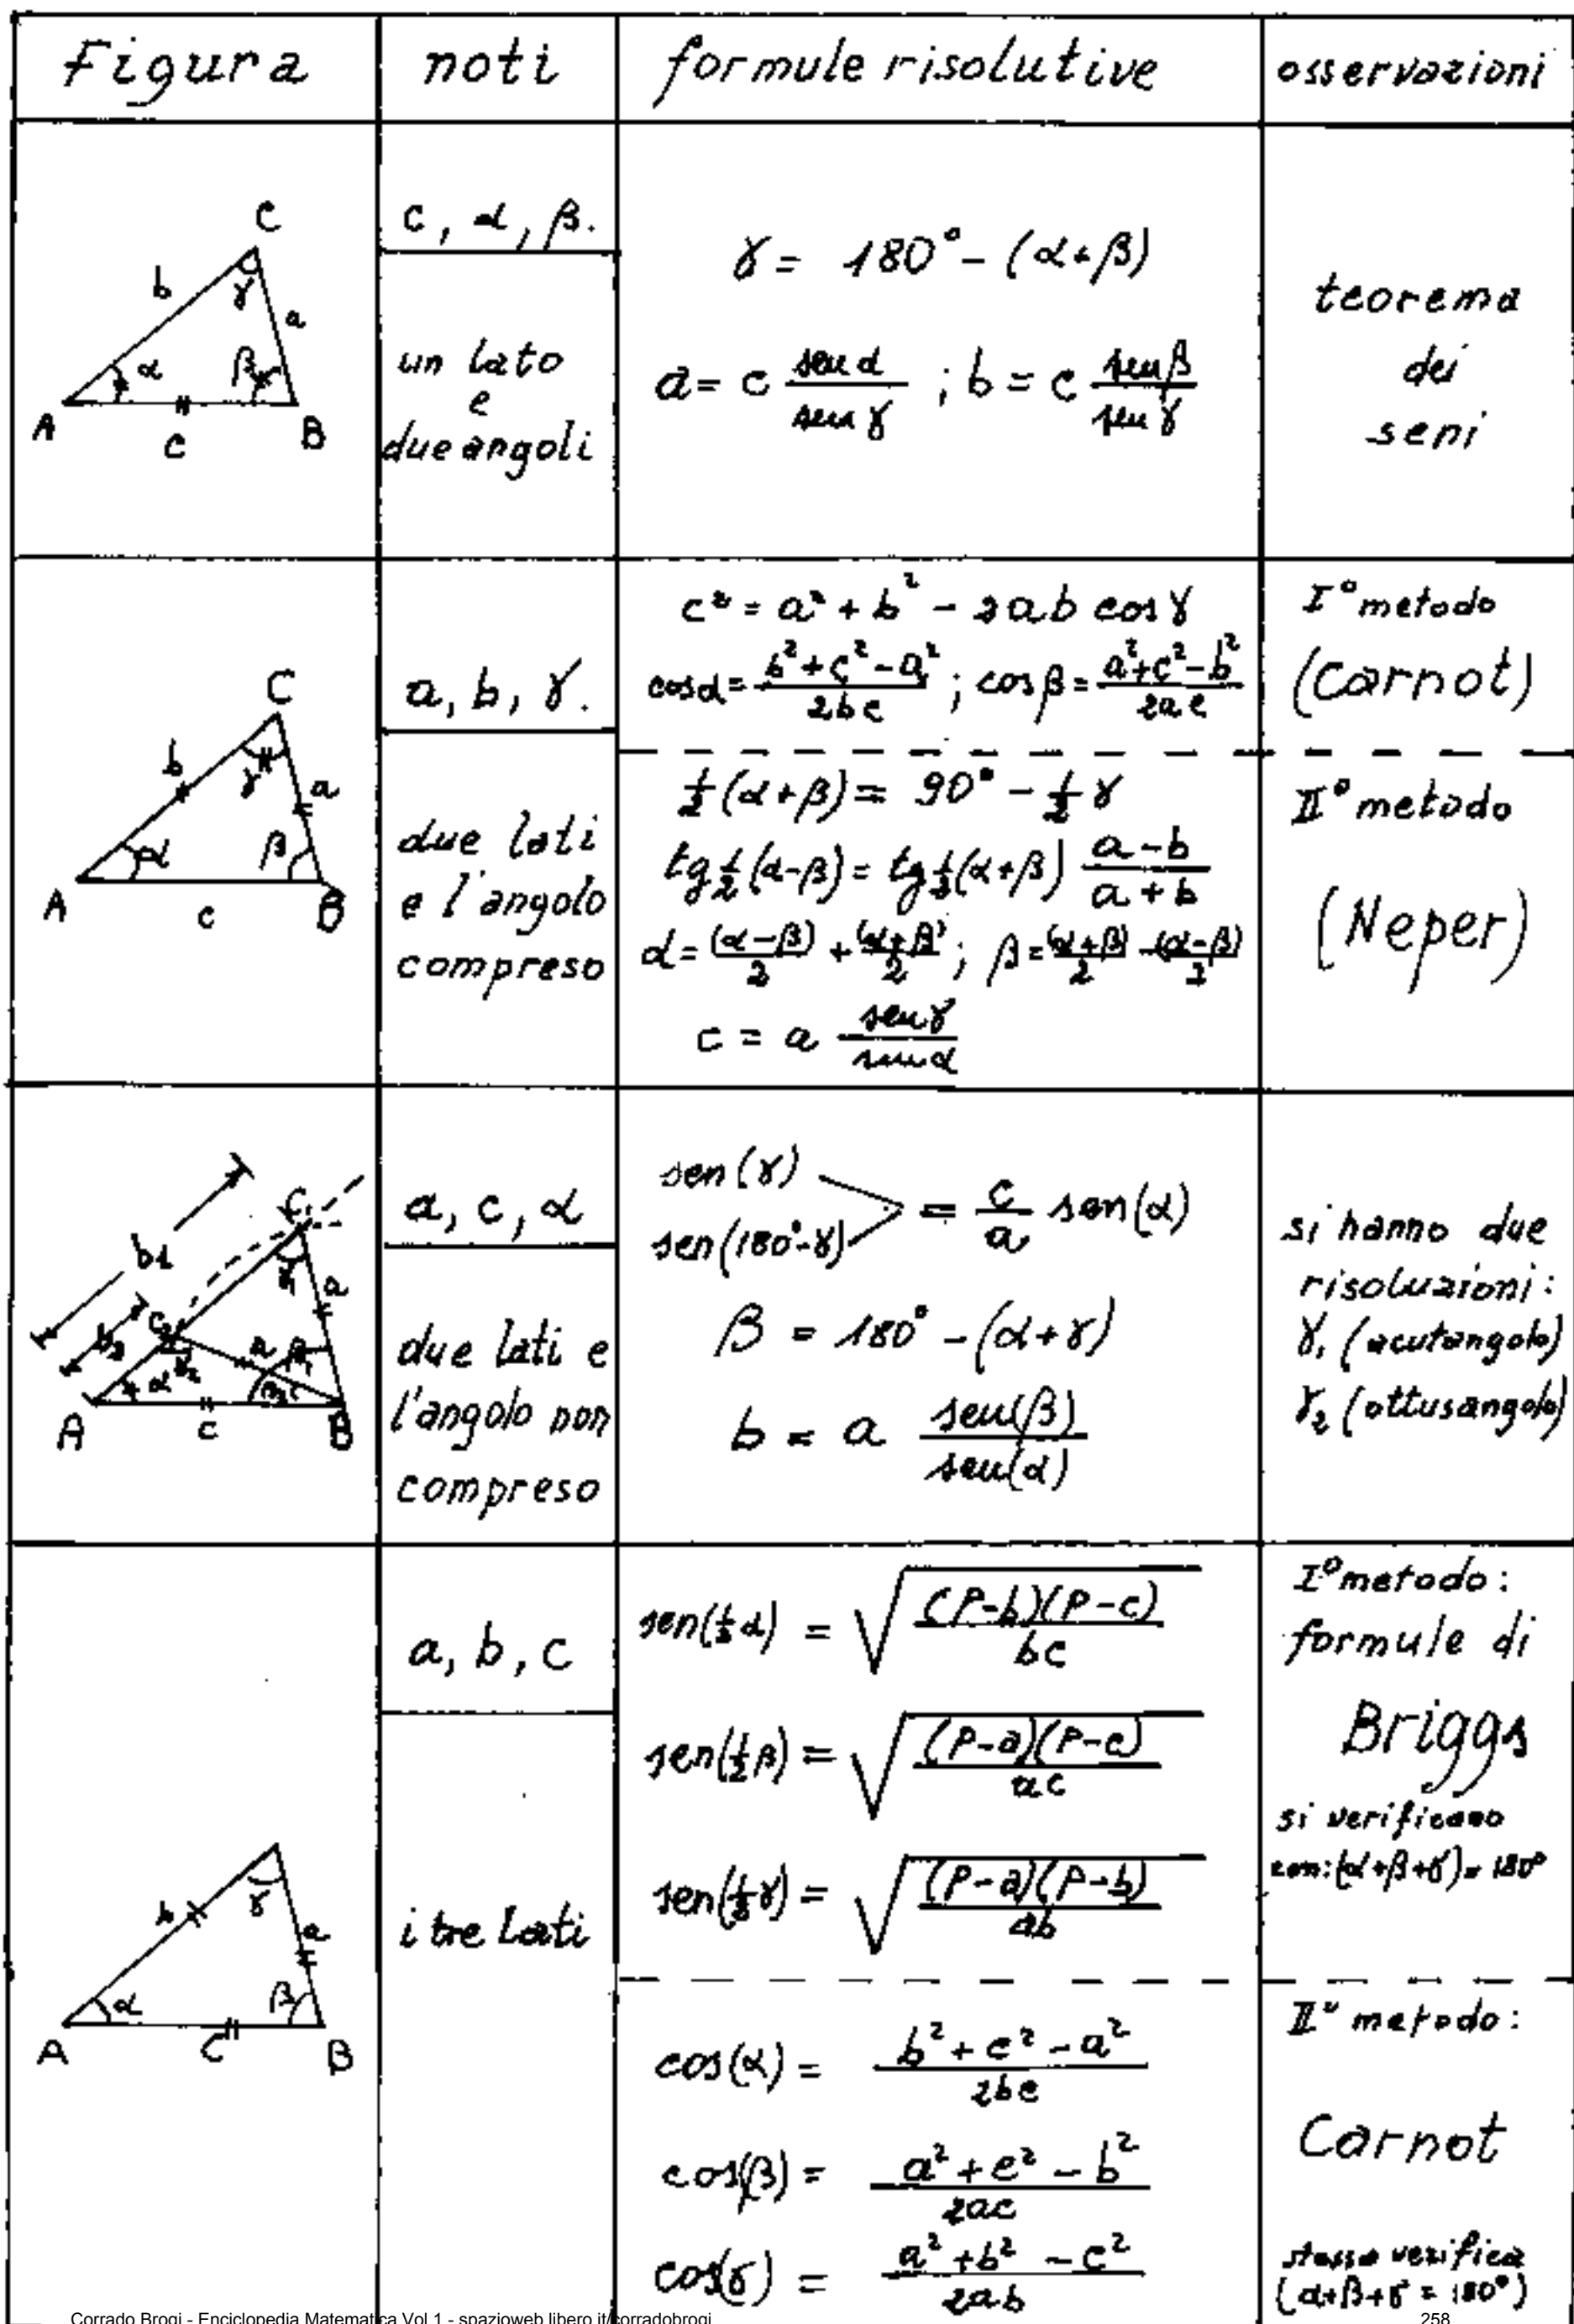 Figura noti formule risolutive osservazioni
C
b γ a
α β
A c B
c, α, β.
un lato
e
due angoli
γ = 180° - (α+β)
a = c sen α / sen γ ; b = c sen β / sen γ
teorema
dei
seni
C
b γ a
α β
A c B
a, b, γ.
due lati
e l'angolo
compreso
c² = a² + b² - 2ab cos γ
cos α = b²+c²-a² / 2bc ; cos β = a²+c²-b² / 2ac
I° metodo
(Carnot)
½(α+β) = 90° - ½γ
tg ½(α-β) = tg ½(α+β) a-b / a+b
α = (α-β)/2 + (α+β)/2 ; β = (α+β)/2 - (α-β)/2
c = a sen γ / sen α
II° metodo
(Neper)
C₁
b1 γ₁ a
b₂ C₂ γ₂ a β₁
α β₂
A c B
a, c, α
due lati e
l'angolo non
compreso
sen(γ)
sen(180°-γ) = c/a sen(α)
β = 180° - (α+γ)
b = a sen(β) / sen(α)
si hanno due
risoluzioni:
γ₁ (acutangolo)
γ₂ (ottusangolo)
b γ a
α β
A C B
a, b, c
i tre lati
sen(½α) = √(P-b)(P-c) / bc
sen(½β) = √(P-a)(P-c) / ac
sen(½γ) = √(P-a)(P-b) / ab
I° metodo:
formule di
Briggs
si verificano
con: (α+β+γ) = 180°
cos(α) = b²+c²-a² / 2bc
cos(β) = a²+c²-b² / 2ac
cos(γ) = a²+b²-c² / 2ab
II° metodo:
Carnot
stessa verifica
(α+β+γ = 180°)
Corrado Brogi - Enciclopedia Matematica Vol 1 - spazioweb.libero.it/corradobrogi 258